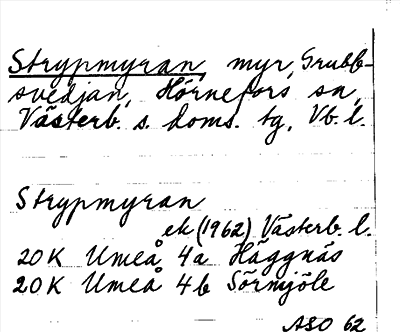 Strypmyran, myr, Grubb-
svedjan, Hörnefors sn,
Västerb. s. doms. tg, Vb. l.
Strypmyran
ek (1962) Västerb. l.
20K Umeå 4a Häggnäs
20K Umeå 4b Sörmjöle
ASO 62